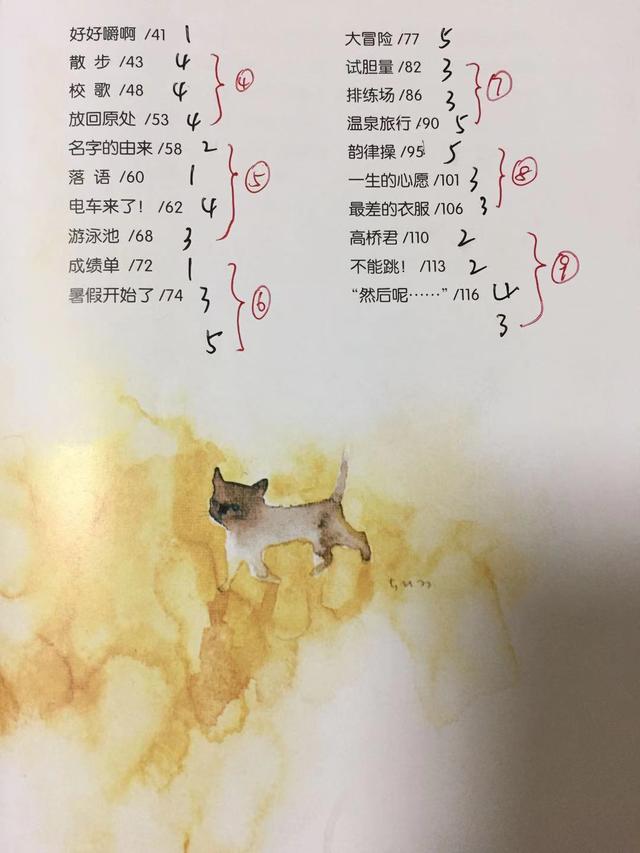 好好嚼啊 /41 1
散 步 /43 4
校 歌 /48 4
④
放回原处 /53 4
名字的由来 /58 2
落 语 /60 1
⑤
电车来了！ /62 4
游泳池 /68 3
成绩单 /72 1
暑假开始了 /74 3
⑥
5
大冒险 /77 5
试胆量 /82 3
⑦
排练场 /86 3
温泉旅行 /90 5
韵律操 /95 5
一生的心愿 /101 3
⑧
最差的衣服 /106 3
高桥君 /110 2
不能跳！ /113 2
⑨
“然后呢……” /116 4
3